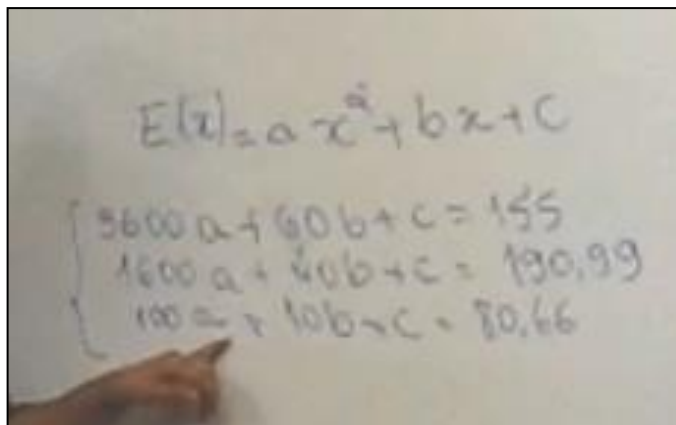 E(x)=ax²+bx+c
3600a+60b+c=155
1600a+40b+c=190,99
100a+10b+c=80,66